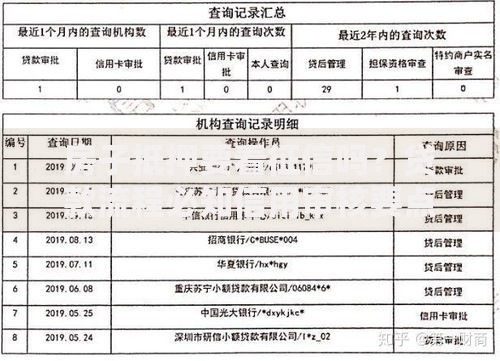 查询记录汇总
最近1个月内的查询机构数 最近1个月内的查询次数 最近2年内的查询次数
贷款审批 信用卡审批 贷款审批 信用卡审批 本人查询 贷后管理 担保资格审查 特约商户实名审查
1 0 1 0 0 29 1 0
机构查询记录明细
编号 查询日期 查询操作员 查询原因
1 2019. 贷款审批
2 2019. 贷后管理
3 2019. 贷后管理
4 2019.08.13 招商银行/C*BUSE*004 贷后管理
5 2019.07.11 华夏银行/hx*hgy 贷后管理
6 2019.06.08 重庆苏宁小额贷款有限公司/06084*6* 贷后管理
7 2019.05.25 中国光大银行/*dxykjkc* 信用卡审批
8 2019.05.24 深圳市研信小额贷款有限公司/l*z_02 贷款审批
知乎